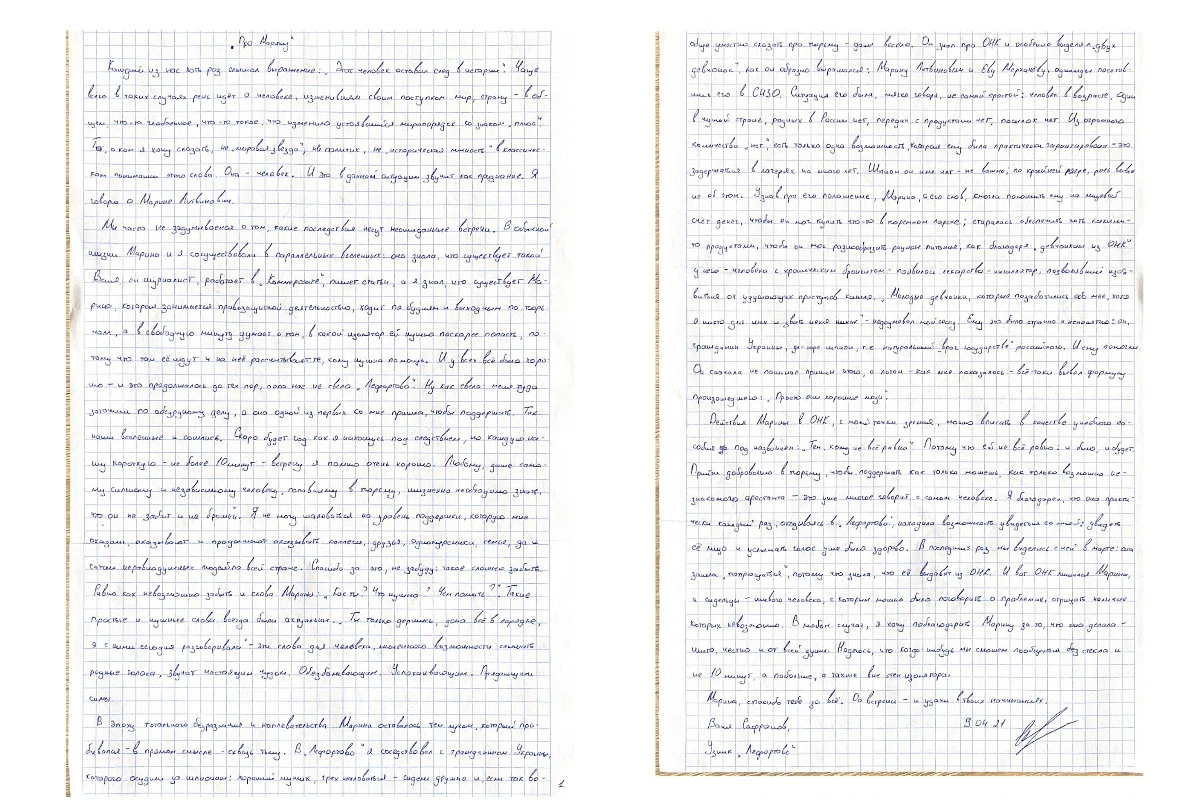 „Про Марину"
Каждый из нас хоть раз слышал выражение: „Этот человек оставил след в истории". Чаще
всего в таких случаях речь идёт о человеке, изменившим своим поступком мир, страну – в об-
щем, что-то глобальное, что-то такое, что изменило устоявшийся миропорядок со знаком „плюс".
Та, о ком я хочу сказать, не „мировая звезда", не политик, не „историческая личность" в классичес-
ком понимании этого слова. Она – человек. И это в данной ситуации звучит как признание. Я
говорю о Марине Литвинович.
Мы часто не задумываемся о том, какие последствия несут неожиданные встречи. В обычной
жизни Марина и я существовали в параллельных вселенных: она знала, что существует такой
Ваня, он журналист, работает в „Коммерсанте", пишет статьи, а я знал, что существует Ма-
рина, которая занимается правозащитной деятельностью, ходит по будням и выходным по тюрь-
мам, а в свободную минуту думает о том, в какой изолятор ей нужно поскорее попасть, по-
тому что там её ждут и на неё рассчитывают те, кому нужна помощь. И у всех всё было хоро-
шо – и это продолжалось до тех пор, пока нас не свело „Лефортово". Ну как свело: меня туда
заточили по абсурдному делу, а она одной из первых ко мне пришла, чтобы поддержать. Так
наши вселенные и сошлись. Скоро будет год как я нахожусь под следствием, но каждую на-
шу короткую – не более 10 минут – встречу я помню очень хорошо. Любому, даже само-
му сильному и независимому человеку, попавшему в тюрьму, жизненно необходимо знать,
что он не забыт и не брошен. Я не могу жаловаться на уровень поддержки, которую мне
оказали, оказывают и продолжают оказывать коллеги, друзья, однокурсники, семья, да и
сотни неравнодушных людей по всей стране. Спасибо за это, не забуду: такое сложно забыть.
Равно как невозможно забыть и слова Марины: „Как ты? Что нужно? Чем помочь?" Такие
простые и нужные слова всегда были актуальны. „Ты только держись, дома всё в порядке,
я с ними сегодня разговаривала" – эти слова для человека, лишенного возможности слышать
родные голоса, звучат настоящим чудом. Обезболивающим. Успокаивающим. Придающим
силы.
В эпоху тотального безразличия и наплевательства Марина оставалась тем лучом, который про-
бивался – в прямом смысле – сквозь тьму. В „Лефортово" я соседствовал с гражданином Украины,
которого осудили за шпионаж: хороший мужик, грех жаловаться – сидели дружно и, если так во-
1
обще уместно сказать про тюрьму – даже весело. Он знал про ОНК и особенно выделял „двух
девчонок", как он образно выражался: Марину Литвинович и Еву Меркачеву, однажды посетив-
ших его в СИЗО. Ситуация его была, мягко говоря, не самой простой: человек в возрасте, один
в чужой стране, родных в России нет, передач с продуктами нет, посылок нет. Из огромного
количества „нет", есть только одна возможность, которая ему была практически гарантирована – это
задержаться в лагерях на много лет. Шпион он или нет – не важно, по крайней мере, речь вовсе
не об этом. Узнав про его положение, Марина, с его слов, смогла положить ему на лицевой
счёт денег, чтобы он мог купить что-то в тюремном ларьке; старалась обеспечить хоть какими-
то продуктами, чтобы он мог разнообразить рацион питания, как благодаря „девчонкам из ОНК"
у него – человека с хроническим бронхитом – появилось лекарство – ингалятор, позволивший изба-
виться от удушающих приступов кашля. „Молодцы девчонки, которые позаботились обо мне, хотя
я никто для них и звать меня никак" – недоумевал мой сосед. Ему это было странно и непонятно: он,
гражданин Украины, де-юре шпион, т.е. натуральный „враг государства" российского. И ему помогли.
Он сначала не понимал причин этого, а потом – как мне показалось – всё-таки вывел формулу
произошедшего: „Просто они хорошие люди".
Действия Марины в ОНК, с моей точки зрения, можно вписать в качестве учебного по-
собия под названием: „Тем, кому не всё равно". Потому что ей не всё равно: и было, и будет.
Прийти добровольно в тюрьму, чтобы поддержать как только можешь, как только возможно не-
знакомого арестанта – это уже многое говорит о самом человеке. Я благодарен, что она практи-
чески каждый раз, оказываясь в „Лефортово", находила возможность увидеться со мной: увидеть
её лицо и услышать голос уже было здорово. В последний раз мы виделись с ней в марте: она
зашла „попрощаться", потому что знала, что её выдавят из ОНК. И вот ОНК лишился Марины,
а сидельцы – живого человека, с которым можно было поговорить о проблемах, отрицать наличие
которых невозможно. В любом случае, я хочу поблагодарить Марину за то, что она делала –
честно и от всей души. Надеюсь, что когда-нибудь мы сможем пообщаться без стекла и
не 10 минут, а побольше, а также вне стен изолятора.
Марина, спасибо тебе за всё. До встречи – и удачи в твоих начинаниях.
Ваня Сафронов, 9.04.21
Узник „Лефортово"